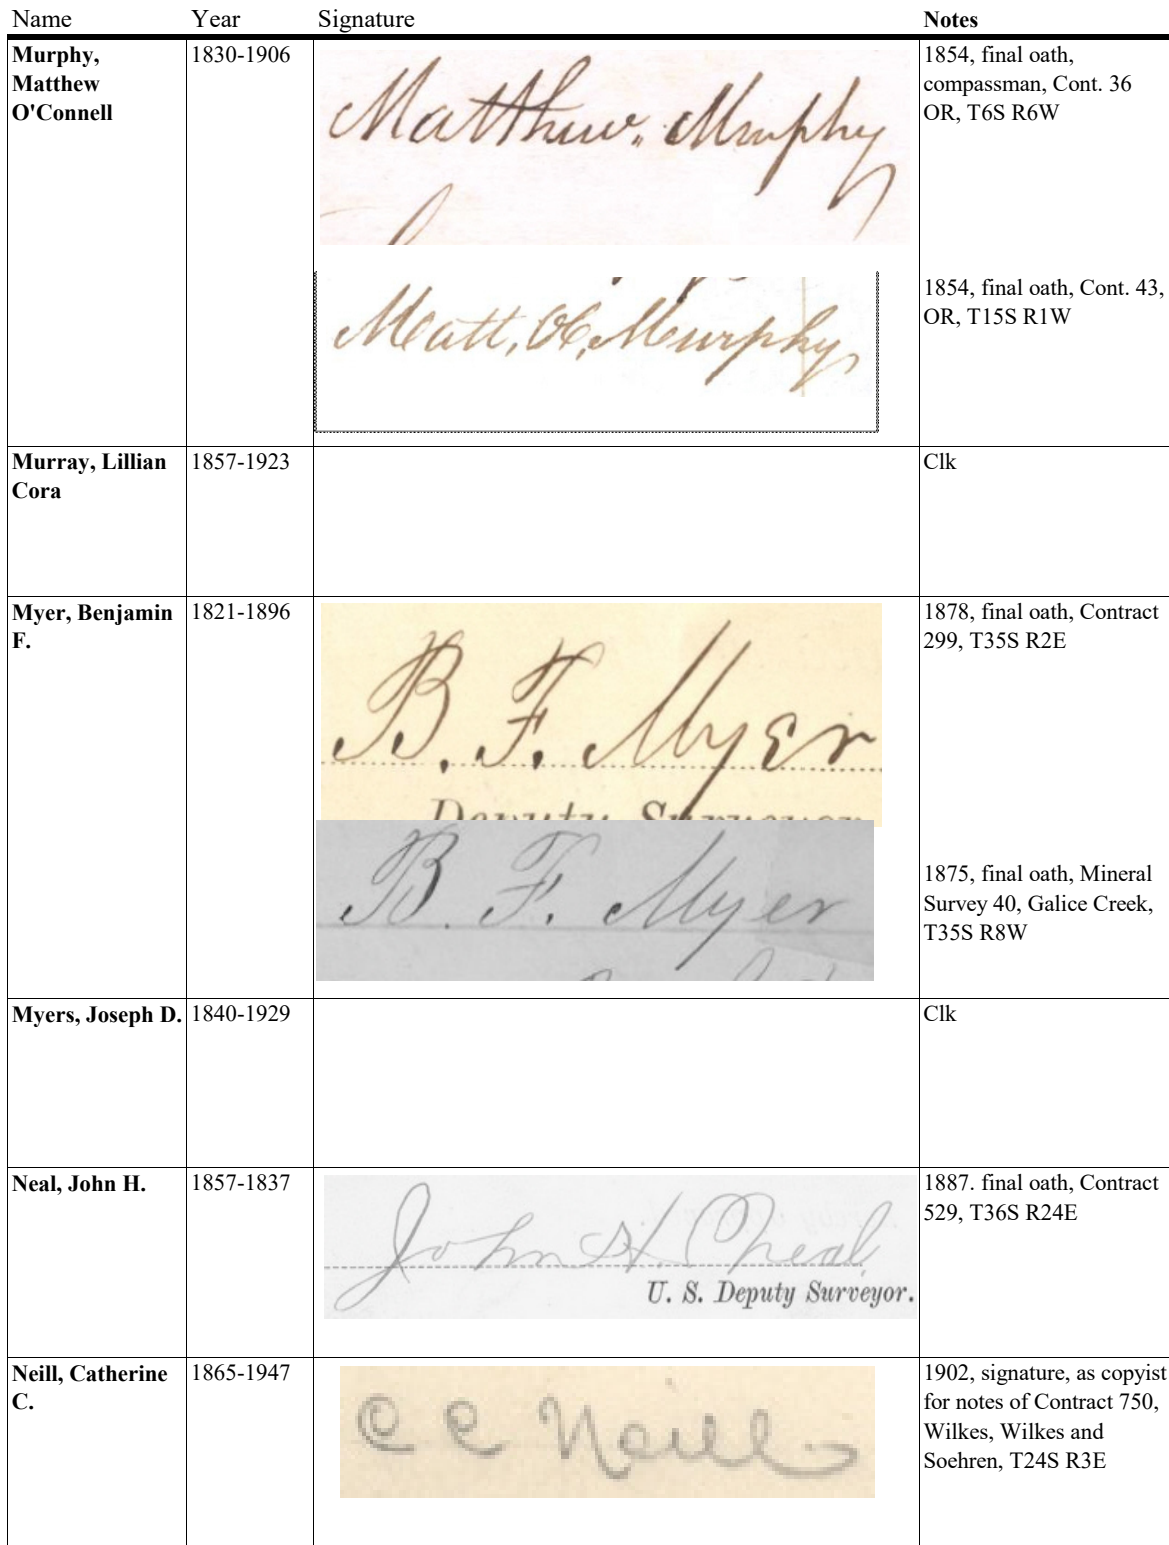 Name Year Signature Notes
Murphy, 1830-1906 Matthew. Murphy 1854, final oath,
Matthew compassman, Cont. 36
O'Connell OR, T6S R6W
Matt, OC, Murphy, 1854, final oath, Cont. 43,
OR, T15S R1W
Murray, Lillian 1857-1923 Clk
Cora
Myer, Benjamin 1821-1896 B. F. Myer 1878, final oath, Contract
F. 299, T35S R2E
Deputy Surveyor
B. F. Myer 1875, final oath, Mineral
Survey 40, Galice Creek,
T35S R8W
Myers, Joseph D. 1840-1929 Clk
Neal, John H. 1857-1837 John H. Neal 1887. final oath, Contract
529, T36S R24E
U. S. Deputy Surveyor.
Neill, Catherine 1865-1947 C C Neill 1902, signature, as copyist
C. for notes of Contract 750,
Wilkes, Wilkes and
Soehren, T24S R3E